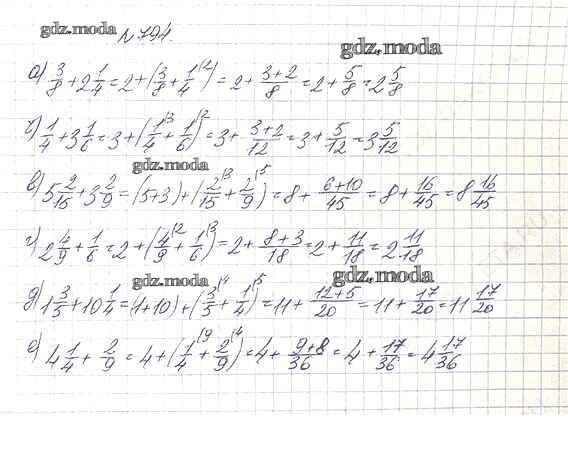 gdz.moda
№794.
gdz.moda
а) 3/8 + 2 1/4 = 2 + (3/8 + 1/4|2) = 2 + (3+2)/8 = 2 + 5/8 = 2 5/8
б) 1/4 + 3 1/6 = 3 + (1/4|3 + 1/6|2) = 3 + (3+2)/12 = 3 + 5/12 = 3 5/12
gdz.moda
в) 5 2/15 + 3 2/9 = (5+3) + (2/15|3 + 2/9|5) = 8 + (6+10)/45 = 8 + 16/45 = 8 16/45
г) 2 4/9 + 1/6 = 2 + (4/9|2 + 1/6|3) = 2 + (8+3)/18 = 2 + 11/18 = 2 11/18
gdz.moda gdz.moda
д) 1 3/5 + 10 1/4 = (1+10) + (3/5|4 + 1/4|5) = 11 + (12+5)/20 = 11 + 17/20 = 11 17/20
е) 4 1/4 + 2/9 = 4 + (1/4|9 + 2/9|4) = 4 + (9+8)/36 = 4 + 17/36 = 4 17/36